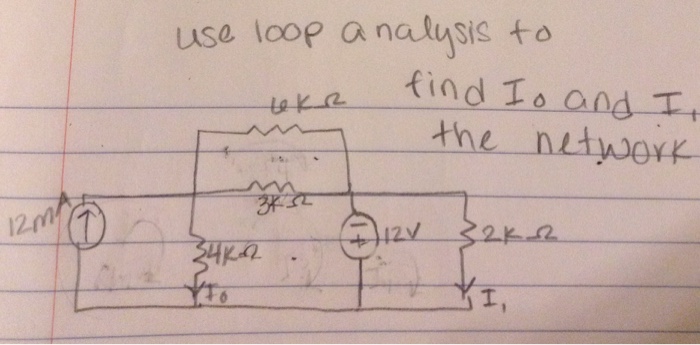 use loop analysis to
find Io and I,
the network
6kΩ
3kΩ
12mA
12V
2kΩ
4kΩ
Io
I,